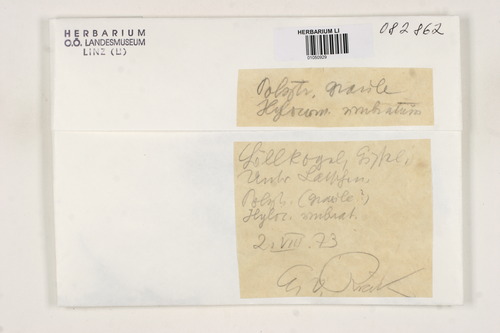 HERBARIUM
O.Ö. LANDESMUSEUM
LINZ (LI)
HERBARIUM LI
01050929
082862
Polytr. gracile
Hylocom. umbratum
Höllkogel, Gipfel,
Unter Latschen.
Polytr. (gracile?)
Hyloc. umbrat.
2. VIII. 73